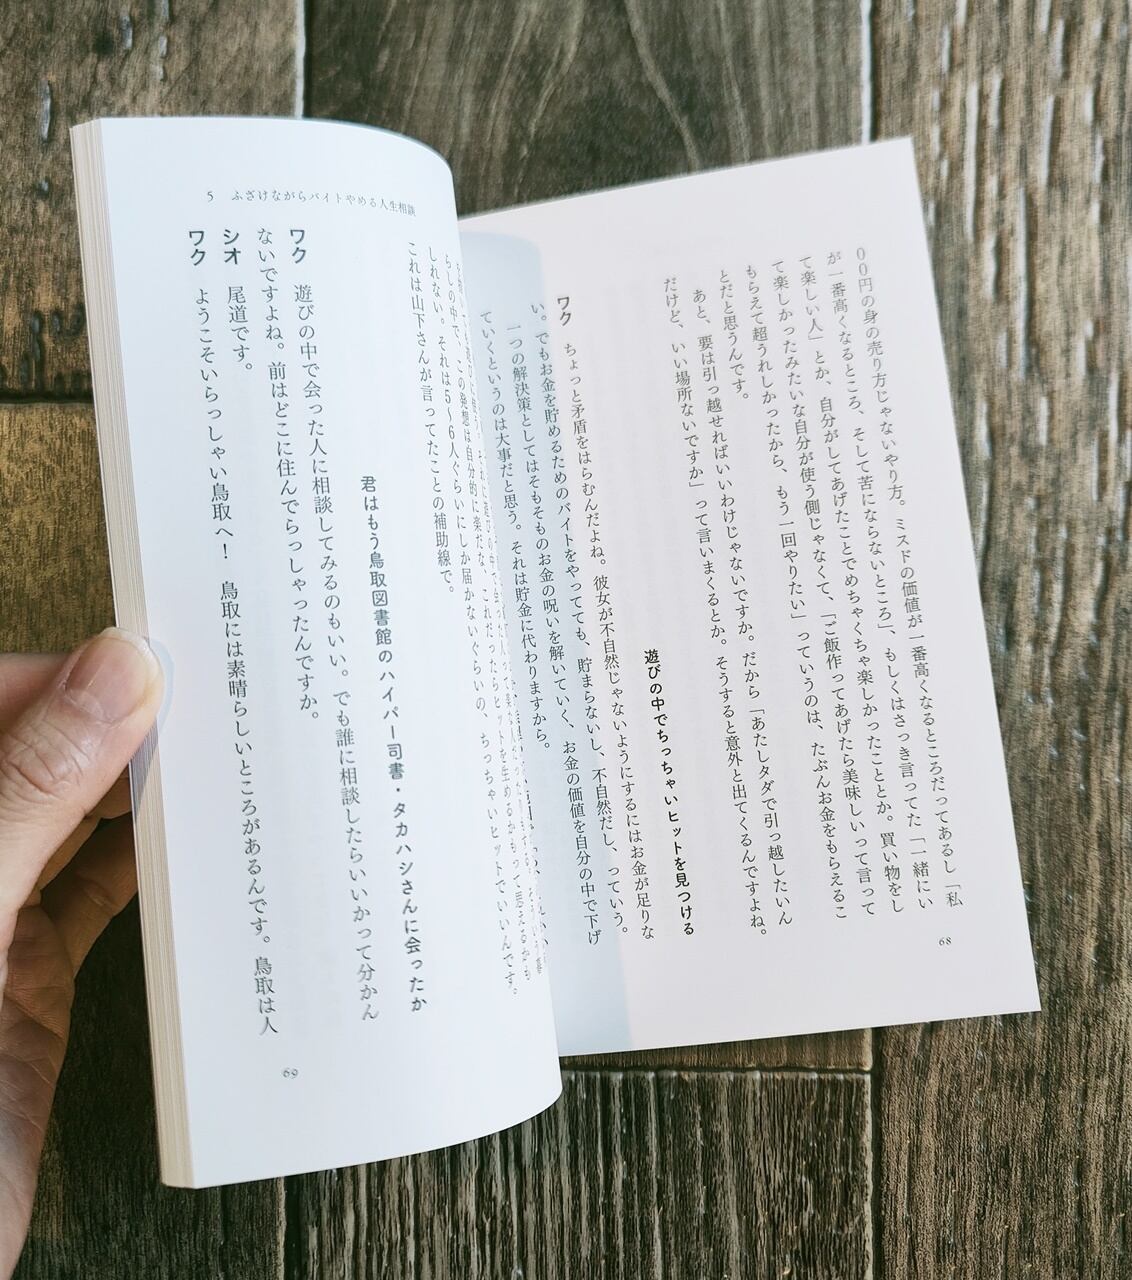 ００円の身の売り方じゃないやり方。ミスドの価値が一番高くなるところだってあるし「私
が一番高くなるところ、そして苦にならないところ」、もしくはさっき言ってた「一緒にい
て楽しい人」とか、自分がしてあげたことでめちゃくちゃ楽しかったこととか。買い物をし
て楽しかったみたいな自分が使う側じゃなくて、「ご飯作ってあげたら美味しいって言って
もらえて超うれしかったから、もう一回やりたい」っていうのは、たぶんお金をもらえるこ
とだと思うんです。
あと、要は引っ越せればいいわけじゃないですか。だから「あたしタダで引っ越したいん
だけど、いい場所ないですか」って言いまくるとか。そうすると意外と出てくるんですよね。
遊びの中でちっちゃいヒットを見つける
ワク ちょっと矛盾をはらむんだよね。彼女が不自然じゃないようにするにはお金が足りな
い。でもお金を貯めるためのバイトをやってても、貯まらないし、不自然だし、っていう。
一つの解決策としてはそもそものお金の呪いを解いていく、お金の価値を自分の中で下げ
ていくというのは大事だと思う。それは貯金に代わりますから。
68
5 ふざけながらバイトやめる人生相談
らしの中で、この発想は自分的に楽だな、これだったらヒットを生めるかもって思えるかも
しれない。それは5〜6人ぐらいにしか届かないぐらいの、ちっちゃいヒットでいいんです。
これは山下さんが言ってたことの補助線で。
君はもう鳥取図書館のハイパー司書・タカハシさんに会ったか
ワク 遊びの中で会った人に相談してみるのもいい。でも誰に相談したらいいかって分かん
ないですよね。前はどこに住んでらっしゃったんですか。
シオ 尾道です。
ワク ようこそいらっしゃい鳥取へ！ 鳥取には素晴らしいところがあるんです。鳥取は人
69